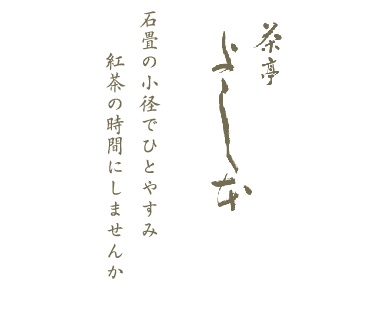 茶亭
よしむ
石畳の小径でひとやすみ
紅茶の時間にしませんか